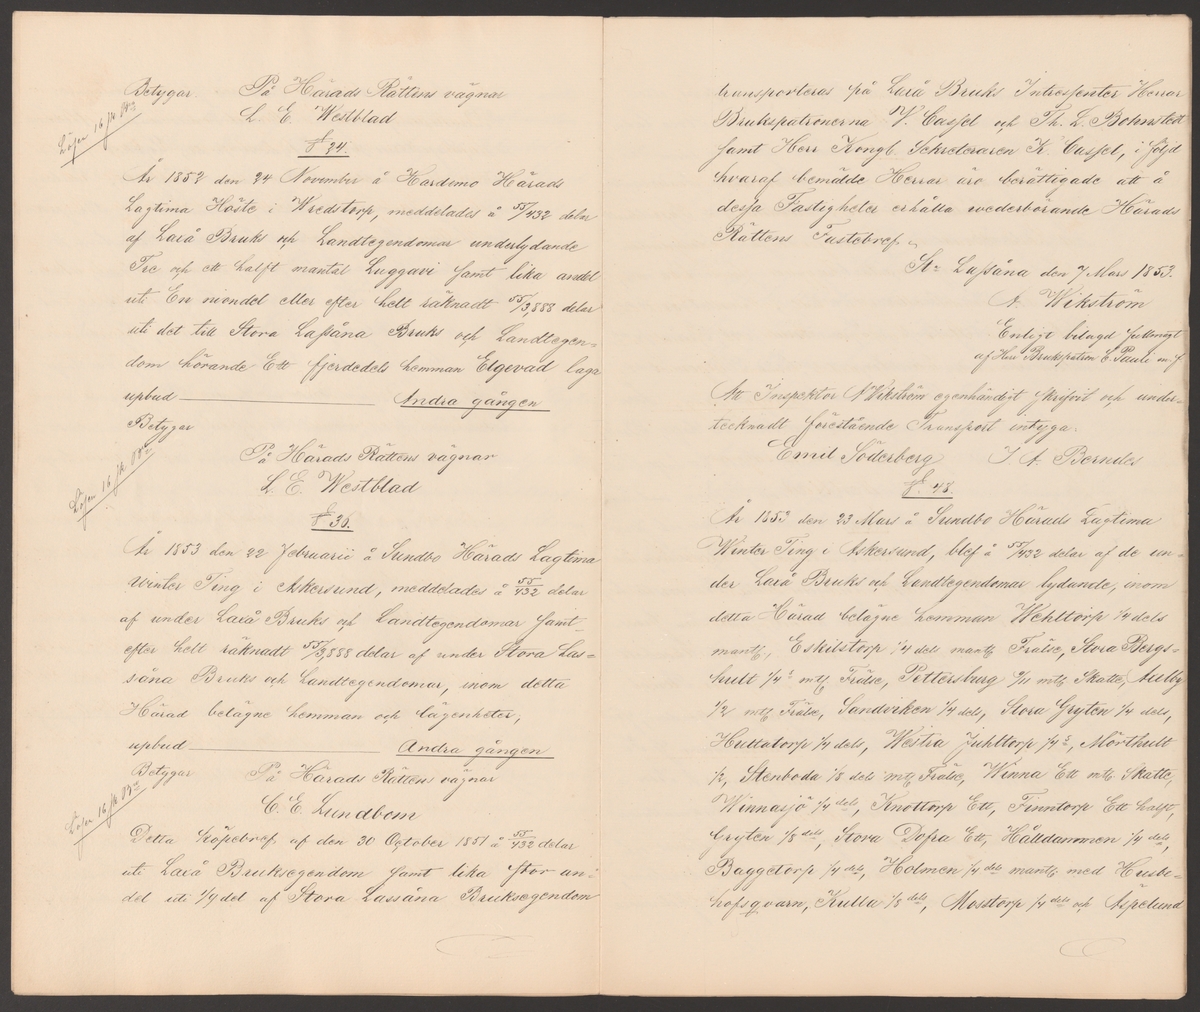 Betygar. På Härads Rättens vägnar
L. E. Westblad
§ 24.
År 1852 den 24 November å Hardemo Härads
Lagtima Höste i Wredstorp, meddelades å 55/432 delar
af Laxå Bruks och Landtegendomar underlydande
Tre och ett halft mantal Luggavi samt lika andel
uti En niondel eller efter helt räknadt 55/3,888 delar
uti det till Stora Lassåna Bruks och Landtegen-
dom hörande Ett fjerdedels hemman Elgevad laga
upbud Andra gången
Betygar
På Härads Rättens vägnar
L. E. Westblad
§ 30.
År 1853 den 22 Februarii å Sundbo Härads Lagtima
Winter Ting i Askersund, meddelades å 55/432 delar
af under Laxå Bruks och Landtegendomar samt
efter helt räknadt 55/3,888 delar af under Stora Las-
såna Bruks och Landtegendomar, inom detta
Härad belägne hemman och lägenheter,
upbud Andra gången
Betygar På Härads Rättens vägnar
C. E. Lundbom
Detta köpebref af den 30 October 1851 å 55/432 delar
uti Laxå Bruksegendom samt lika stor an-
del uti 1/9 del af Stora Lassåna Bruksegendom
Lösen 16 sk
Lösen 16 sk
Lösen 16 sk
transporteras på Laxå Bruks Intressenter Herrar
Brukspatronerna V. Cassel och Th. L. Bohnstedt
samt Herr Kongl. Sekreteraren K. Cassel, i följd
hvaraf bemälde Herrar äro berättigade att å
dessa Fastigheter erhålla wederbörande Härads
Rättens Fastebref.
St: Lassåna den 7 Mars 1853.
A. Wikström
Enligt bilagd fullmagt
af Herr Brukspatron E. Pauli m. f.
Att Inspektor A Wikström egenhändigt skrifvit och under-
tecknadt förestående Transport intyga.
Emil Söderberg J. A. Berndes
§ 48.
År 1853 den 23 Mars å Sundbo Härads Lagtima
Winter Ting i Askersund, blef å 55/432 delar af de un-
der Laxå Bruks och Landtegendomar lydande, inom
detta Härad belägne hemman Wehltorp 1/4 dels
mantl, Eskilstorp 1/4 dels mantl Frälse, Stora Bergs-
hult 1/4 s mtl Frälse, Pettersburg mtl Skatte, Aulby
1/2 mtl Frälse, Sandviken 1/4 dels, Stora Gryten 1/4 dels,
Hultatorp 1/4 dels, Westra Juhltorp 1/4 s, Mörthult
1/2, Stenboda 1/8 dels mtl Frälse, Winna Ett mtl Skatte,
Winnasjö 1/4 dels, Knottorp Ett, Finntorp Ett halft,
Gryten 1/8 dels, Stora Dofra Ett, Hålldammen 1/4 dels,
Baggetorp 1/4 dels, Holmen 1/4 dels mantl med Husbe-
hofsqvarn, Kulla 1/8 dels, Mosstorp 1/4 dels och Aspelund